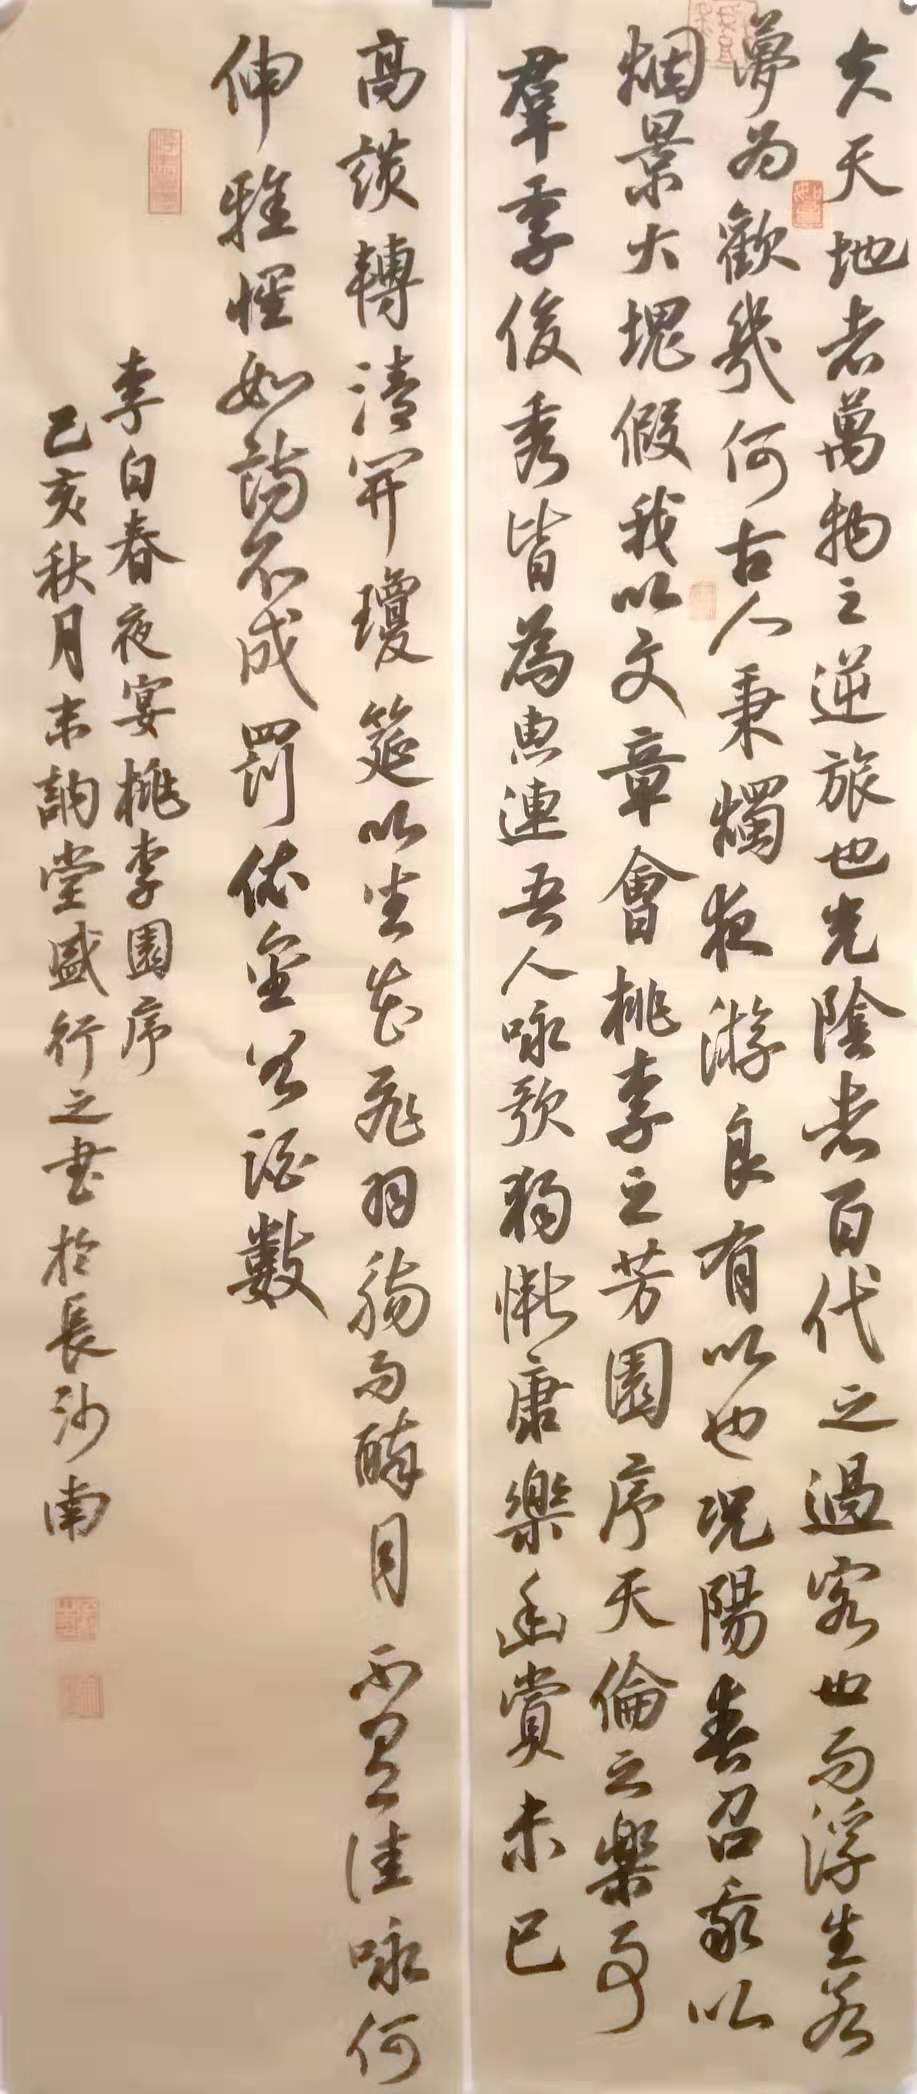 夫天地者萬物之逆旅也光陰者百代之過客也而浮生若
夢為歡幾何古人秉燭夜游良有以也况陽春召我以
烟景大塊假我以文章會桃李之芳園序天倫之樂事
羣季俊秀皆為惠連吾人咏歌獨慚康樂幽賞未已
高談轉清開瓊筵以坐花飛羽觴而醉月不有佳咏何
伸雅懷如詩不成罰依金谷酒數
李白春夜宴桃李園序
己亥秋月末訥堂盛行之书於長沙南